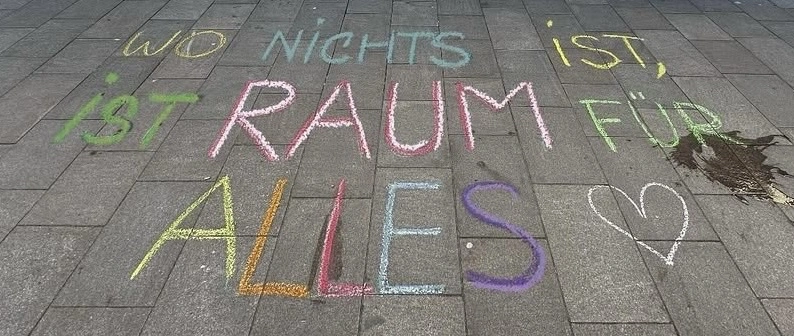 WO NiCHTS iST,
iST RAUM FÜR
ALLES